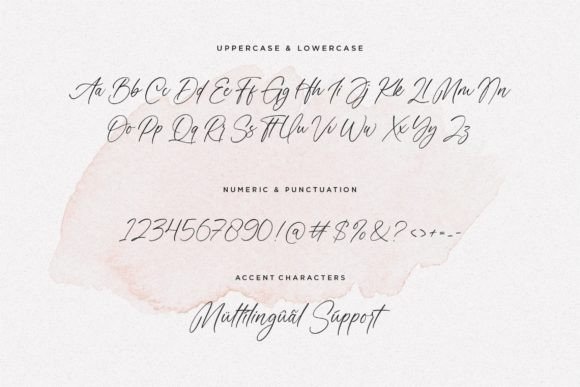 UPPERCASE & LOWERCASE
Aa Bb Cc Dd Ee Ff Gg Hh Ii Jj Kk Ll Mm Nn
Oo Pp Qq Rr Ss Tt Uu Vv Ww Xx Yy Zz
NUMERIC & PUNCTUATION
1234567890!@#$%&?<>+=_-
ACCENT CHARACTERS
Mùltilingûãl Sùpport